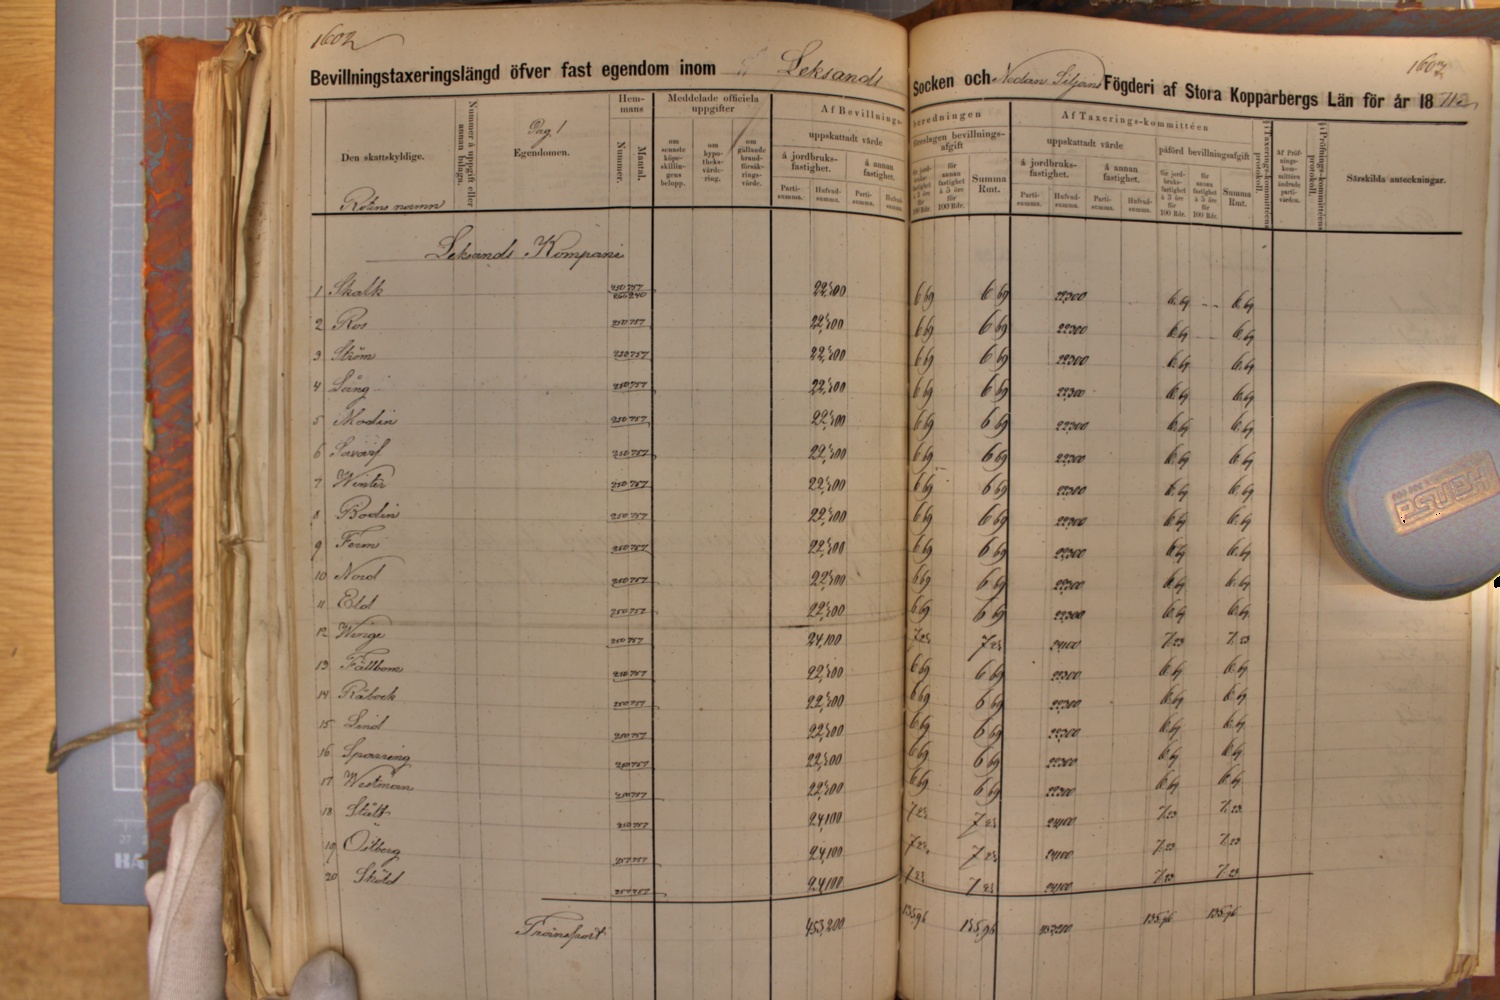 1602
1603
Bevillningstaxeringslängd öfver fast egendom inom Leksands Socken och Nedan Siljans Fögderi af Stora Kopparbergs Län för år 18
Den skattskyldige.
Rotens namn
Nummer å uppgift eller annan bilaga.
Pag.
Egendomen.
Hemmans
Nummer.
Mantal.
Meddelade officiela uppgifter
om senaste köpeskillingens belopp.
om hypoteksvärdering.
om gällande brandförsäkringsvärde.
Af Bevillnings-beredningen
uppskattadt värde
å jordbruksfastighet.
å annan fastighet.
Partisumma.
Hufvudsumma.
Partisumma.
Hufvudsumma.
föreslagen bevillningsafgift
för jordbruksfastighet à 3 öre för 100 Rdr.
för annan fastighet à 5 öre för 100 Rdr.
Summa Rmt.
Af Taxerings-kommittéen
uppskattadt värde
å jordbruksfastighet.
å annan fastighet.
Partisumma.
Hufvudsumma.
Partisumma.
Hufvudsumma.
påförd bevillningsafgift
för jordbruksfastighet à 3 öre för 100 Rdr.
för annan fastighet à 5 öre för 100 Rdr.
Summa Rmt.
§ i Taxerings-kommitténs protokoll.
Af Pröfningskommittéen ändrade partivärden.
§ i Pröfnings-kommitténs protokoll.
Särskilda anteckningar.
Leksands Kompani
1 Skalk 22,300 6 69 6 69 22300 6.69 6.69
2 Ros 22,300 6 69 6 69 22300 6.69 6.69
3 Ström 22,300 6 69 6 69 22300 6.69 6.69
4 Lång 22,300 6 69 6 69 22300 6.69 6.69
5 Modin 22,300 6 69 6 69 22300 6.69 6.69
6 22,300 6 69 6 69 22300 6.69 6.69
7 Winter 22,300 6 69 6 69 22300 6.69 6.69
8 Bodin 22,300 6 69 6 69 22300 6.69 6.69
9 Ferm 22,300 6 69 6 69 22300 6.69 6.69
10 Nord 22,300 6 69 6 69 22300 6.69 6.69
11 Eld 22,300 6 69 6 69 22300 6.69 6.69
12 Winge 24,100 7 23 7 23 24100 7.23 7.23
13 Fällbom 22,300 6 69 6 69 22300 6.69 6.69
14 Råbock 22,300 6 69 6 69 22300 6.69 6.69
15 Lind 22,300 6 69 6 69 22300 6.69 6.69
16 Sparring 22,300 6 69 6 69 22300 6.69 6.69
17 Westman 22,300 6 69 6 69 22300 6.69 6.69
18 Stålt 24,100 7 23 7 23 24100 7.23 7.23
19 Östberg 24,100 7 23 7 23 24100 7.23 7.23
20 Sköld 24,100 7 23 7 23 24100 7.23 7.23
Transport 453,200 135,96 135,96 453,200 135.96 135.96